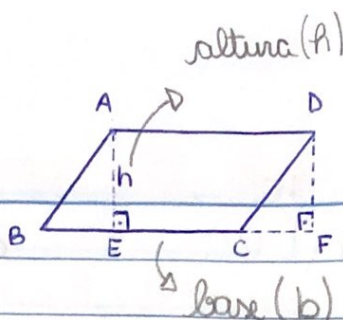 altura (h)
A D
h
B E C F
base (b)